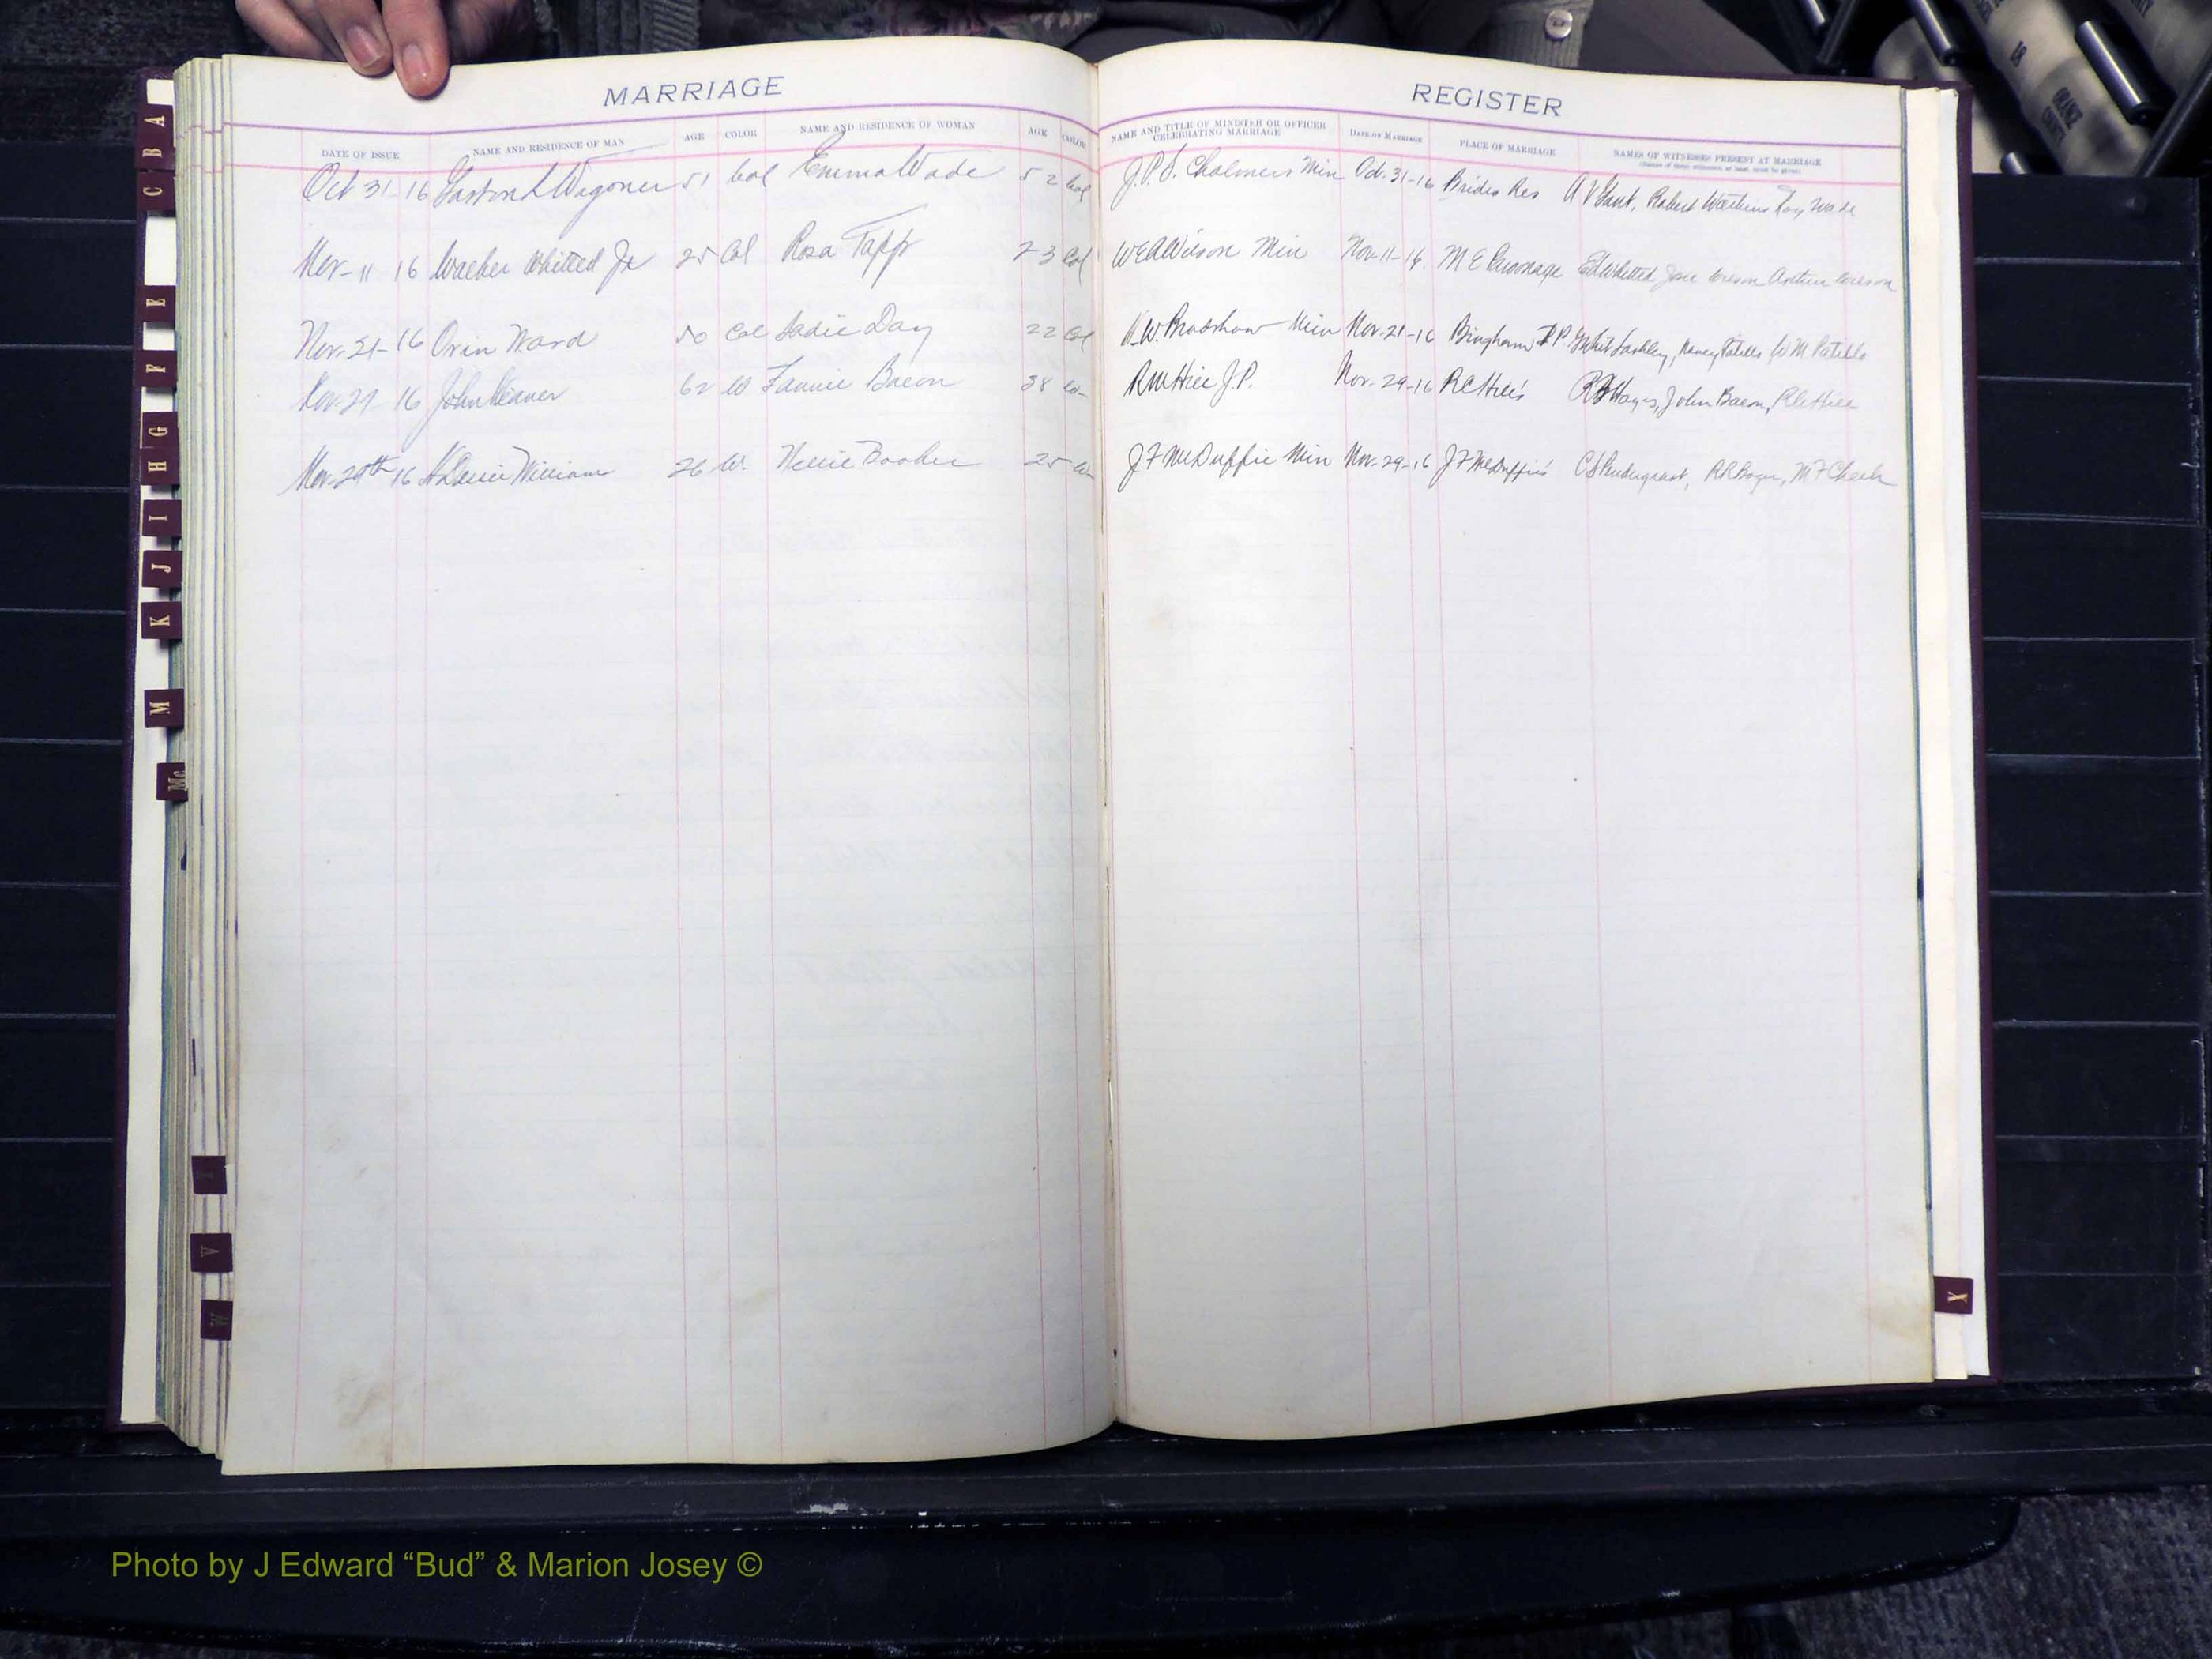 MARRIAGE REGISTER
DATE OF ISSUE NAME AND RESIDENCE OF MAN AGE COLOR NAME AND RESIDENCE OF WOMAN AGE COLOR NAME AND TITLE OF MINISTER OR OFFICER CELEBRATING MARRIAGE DATE OF MARRIAGE PLACE OF MARRIAGE NAMES OF WITNESSES PRESENT AT MARRIAGE
Oct 31-16 Gaston L Wagoner 51 Col Emma Wade 52 Col J.P.S. Chalmers Min Oct. 31-16 Brides Res A V Gant, Robert Watkins Roy Wade
Nov-11 16 Walker Whitted Jr 25 Col Rosa Tapp 23 Col W E A Wilson Min Nov 11-16 M E Parsonage Ed Whitted
Nov-21-16 Orin Ward 50 Col Sadie Day 22 Col W. Bradshaw Min Nov-21-16 Bingham T.P. Lashley, Nancy W M
Nov 27 16 John 62 W Fannie Bacon 38 W J.P. Nov-29-16 Hayes, John Bacon,
Nov 29th 16 William 26 W. 25 W J F McDuffie Min Nov-29-16 J F McDuffie's C S Pendergrast, M F Cheek
A
B
C
E
F
G
H
I
J
K
M
Mc
T
V
W
Y
ORANGE
COUNTY
18
Photo by J Edward “Bud” & Marion Josey ©